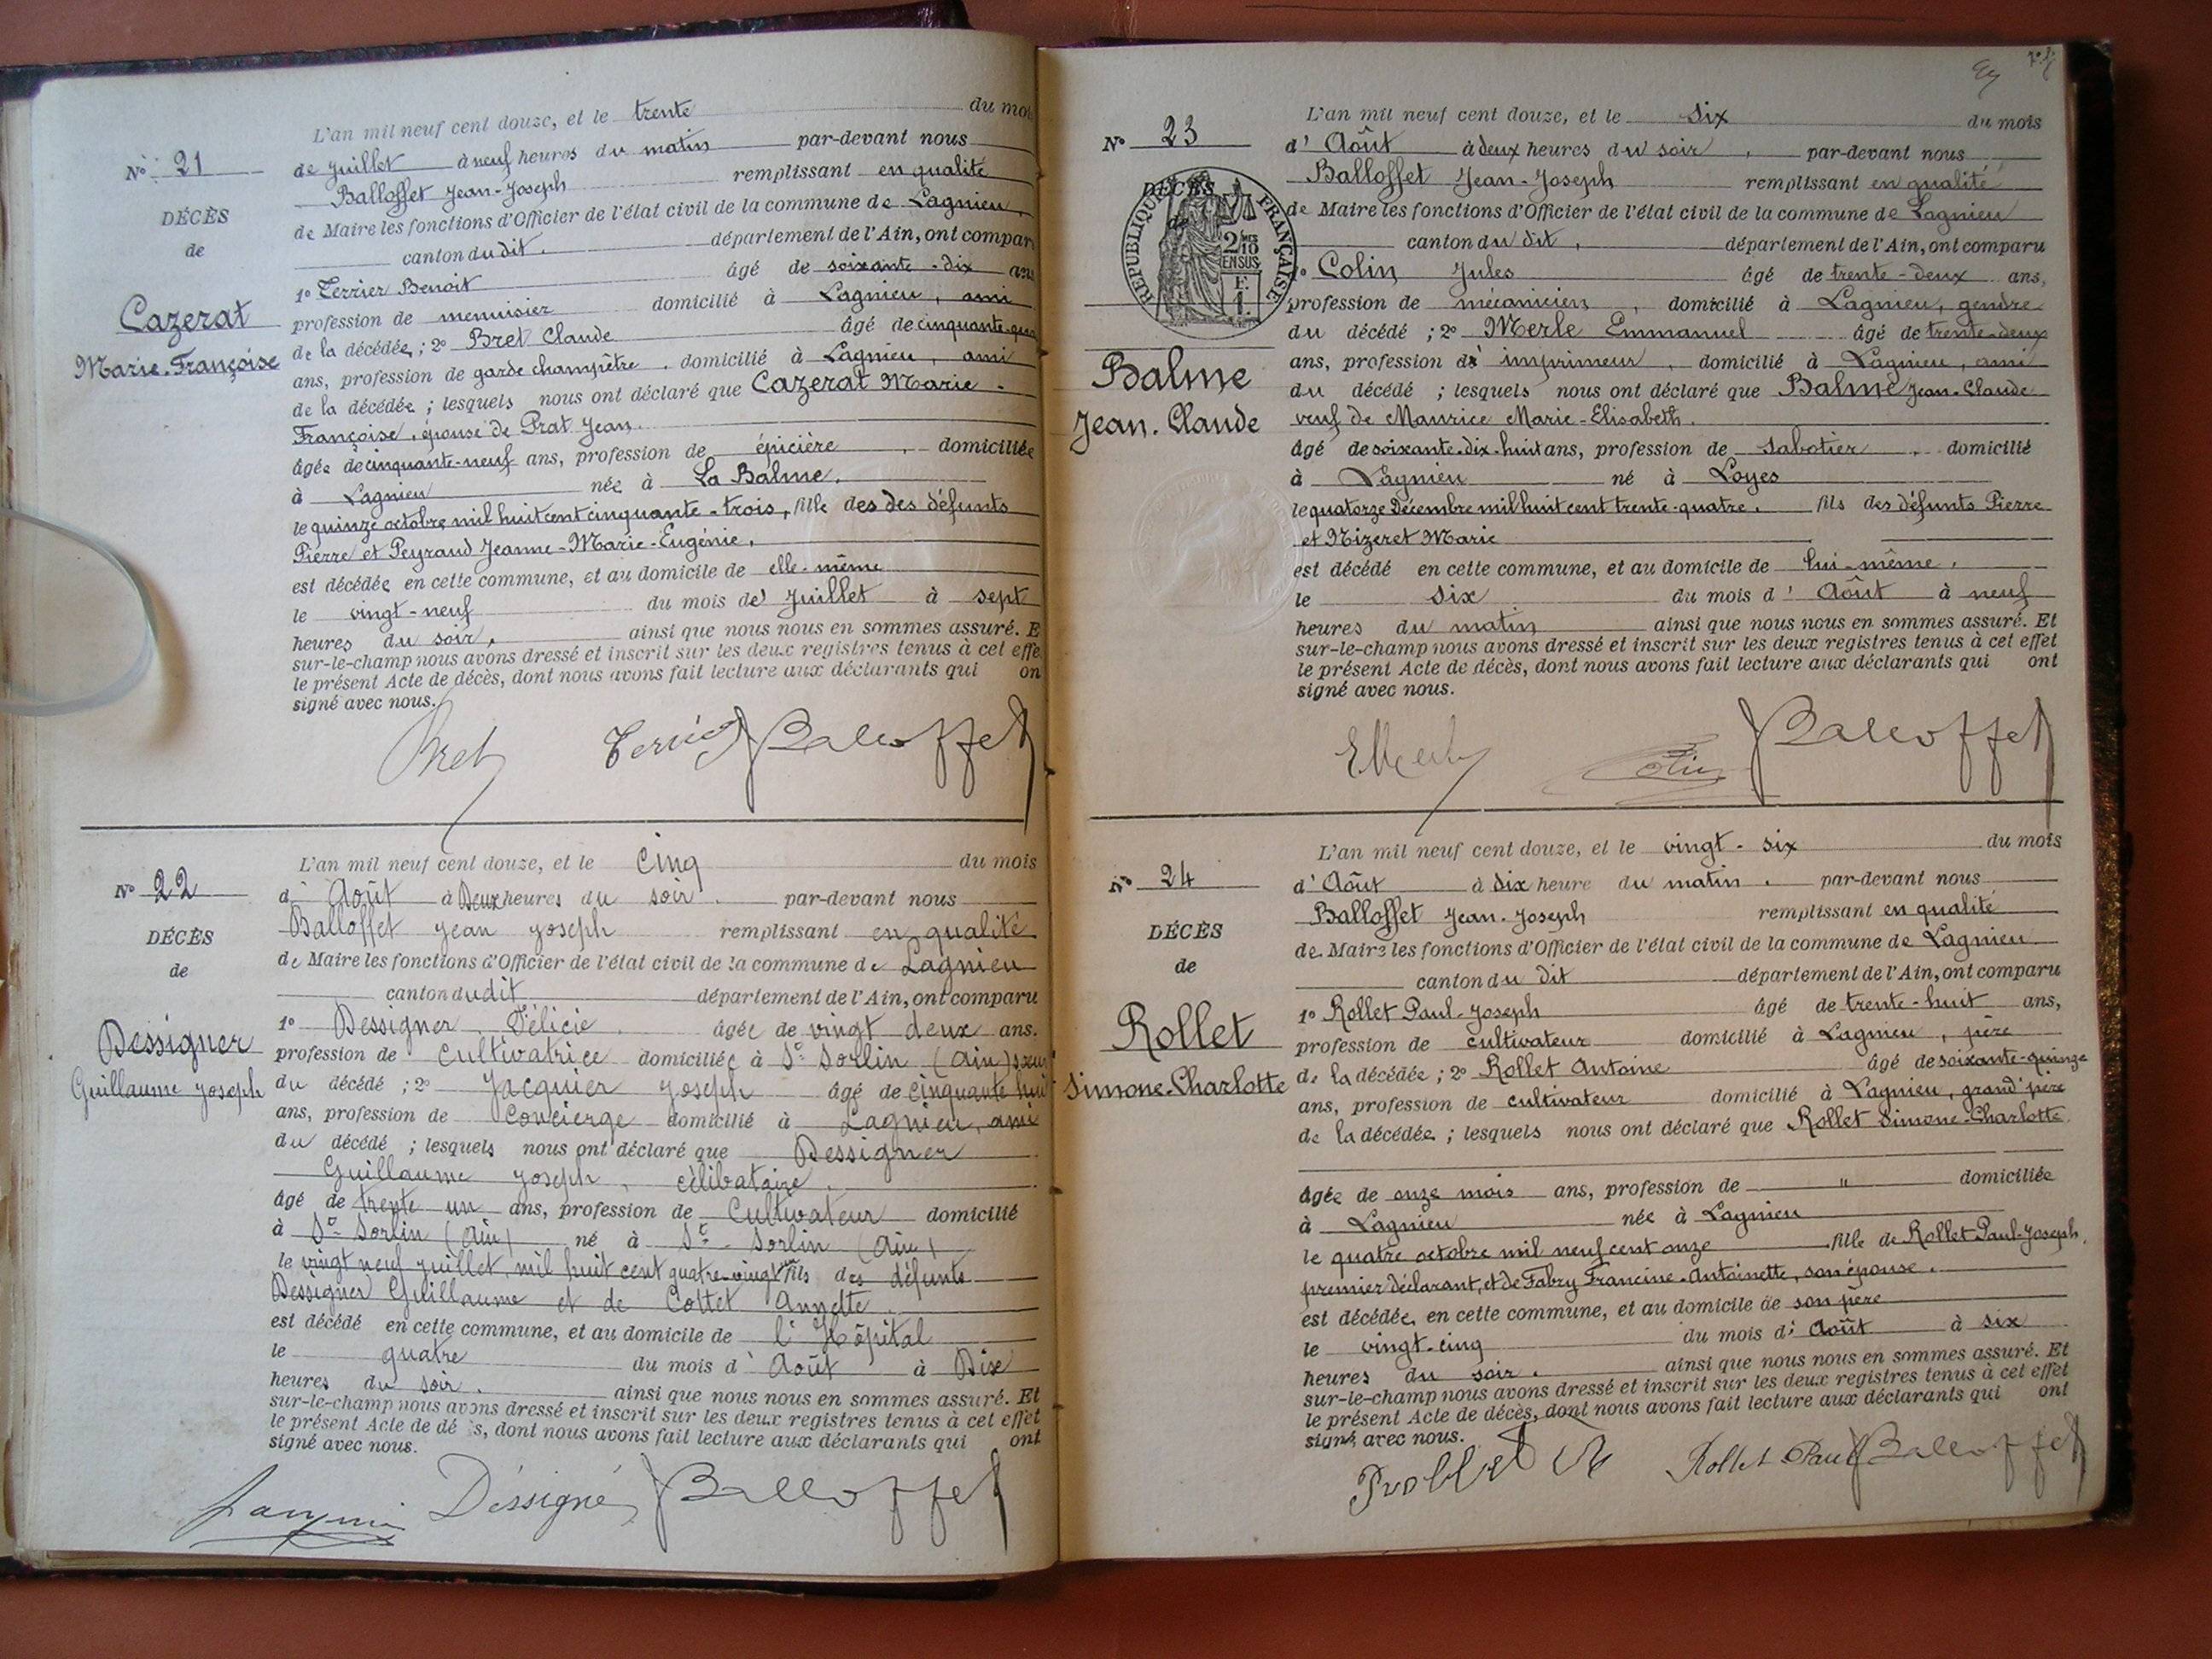 L'an mil neuf cent douze, et le trente du mois
N° 21
de Juillet à neuf heures du matin par-devant nous
Balloffet Jean-Joseph remplissant en qualité
DÉCÈS
de Maire les fonctions d'Officier de l'état civil de la commune de Lagnieu,
de
canton du dit. département de l'Ain, ont compar
1° Terrier Benoit âgé de soixante-dix ans
Cazerat
profession de menuisier domicilié à Lagnieu, ami
Marie-Françoise
de la décédée ; 2° Bret Claude âgé de cinquante-qua
ans, profession de garde champêtre, domicilié à Lagnieu, ami
de la décédée ; lesquels nous ont déclaré que Cazerat Marie-
Françoise, épouse de Prat Jean.
âgée de cinquante-neuf ans, profession de épicière, domiciliée
à Lagnieu née à La Balme,
le quinze octobre mil huit cent cinquante-trois, fille des des défunts
Pierre et Peyraud Jeanne-Marie-Eugénie,
est décédée en cette commune, et au domicile de elle-même
le vingt-neuf du mois de Juillet à sept
heures du soir, ainsi que nous nous en sommes assuré. E
sur-le-champ nous avons dressé et inscrit sur les deux registres tenus à cet effe
le présent Acte de décès, dont nous avons fait lecture aux déclarants qui on
signé avec nous.
Bret Terrier Balloffet
L'an mil neuf cent douze, et le cinq du mois
N° 22
d' Août à Deux heures du soir. par-devant nous
Balloffet Jean Joseph remplissant en qualité
DÉCÈS
de Maire les fonctions d'Officier de l'état civil de la commune de Lagnieu
de
canton du dit département de l'Ain, ont comparu
1° Dessigner Délicie âgée de vingt deux ans.
Dessigner
profession de Cultivatrice domiciliée à St Sorlin (Ain) sœur
Guillaume Joseph
du décédé ; 2° Jacquier Joseph âgé de cinquante huit
ans, profession de Concierge domicilié à Lagnieu, ami
du décédé ; lesquels nous ont déclaré que Dessigner
Guillaume Joseph, célibataire.
âgé de trente un ans, profession de Cultivateur domicilié
à St Sorlin (Ain) né à St-Sorlin (Ain)
le vingt neuf juillet, mil huit cent quatre-vingt un fils des défunts
Dessigner Guillaume et de Cottet Annette
est décédé en cette commune, et au domicile de l'Hôpital
le quatre du mois d' Août à Dix
heures du soir. ainsi que nous nous en sommes assuré. Et
sur-le-champ nous avons dressé et inscrit sur les deux registres tenus à cet effet
le présent Acte de dé s, dont nous avons fait lecture aux déclarants qui ont
signé avec nous.
Déssigné Balloffet
L'an mil neuf cent douze, et le six du mois
N° 23
d' Août à deux heures du soir, par-devant nous
Balloffet Jean-Joseph remplissant en qualité
DÉCÈS
de
RÉPUBLIQUE FRANÇAISE
2/10 EN SUS
de Maire les fonctions d'Officier de l'état civil de la commune de Lagnieu
canton du dit, département de l'Ain, ont comparu
1° Colin Jules âgé de trente-deux ans,
profession de mécanicien, domicilié à Lagnieu, gendre
du décédé ; 2° Merle Emmanuel âgé de trente-deux
Balme
ans, profession de imprimeur, domicilié à Lagnieu, ami
du décédé ; lesquels nous ont déclaré que Balme Jean-Claude
Jean-Claude
veuf de Maurice Marie-Elisabeth.
âgé de soixante-dix-huit ans, profession de sabotier, domicilié
à Lagnieu né à Loyes
le quatorze Décembre mil huit cent trente-quatre, fils des défunts Pierre
et Nizeret Marie
est décédé en cette commune, et au domicile de lui-même,
le six du mois d' Août à neuf
heures du matin ainsi que nous nous en sommes assuré. Et
sur-le-champ nous avons dressé et inscrit sur les deux registres tenus à cet effet
le présent Acte de décès, dont nous avons fait lecture aux déclarants qui ont
signé avec nous.
EMerle Colin Balloffet
L'an mil neuf cent douze, et le vingt-six du mois
N° 24
d' Août à dix heure du matin, par-devant nous
Balloffet Jean-Joseph remplissant en qualité
DÉCÈS
de Maire les fonctions d'Officier de l'état civil de la commune de Lagnieu
de
canton du dit département de l'Ain, ont comparu
1° Rollet Paul-Joseph âgé de trente-huit ans,
Rollet
profession de cultivateur domicilié à Lagnieu, père
Simone-Charlotte
de la décédée ; 2° Rollet Antoine âgé de soixante-quinze
ans, profession de cultivateur domicilié à Lagnieu, grand'père
de la décédée ; lesquels nous ont déclaré que Rollet Simone-Charlotte
âgée de onze mois ans, profession de " domiciliée
à Lagnieu née à Lagnieu
le quatre octobre mil neuf cent onze fille de Rollet Paul-Joseph,
premier déclarant, et de Fabry Francine-Antoinette, son épouse.
est décédée, en cette commune, et au domicile de son père
le vingt-cinq du mois d' Août à six
heures du soir. ainsi que nous nous en sommes assuré. Et
sur-le-champ nous avons dressé et inscrit sur les deux registres tenus à cet effet
le présent Acte de décès, dont nous avons fait lecture aux déclarants qui ont
signé avec nous.
Rollet Paul Balloffet